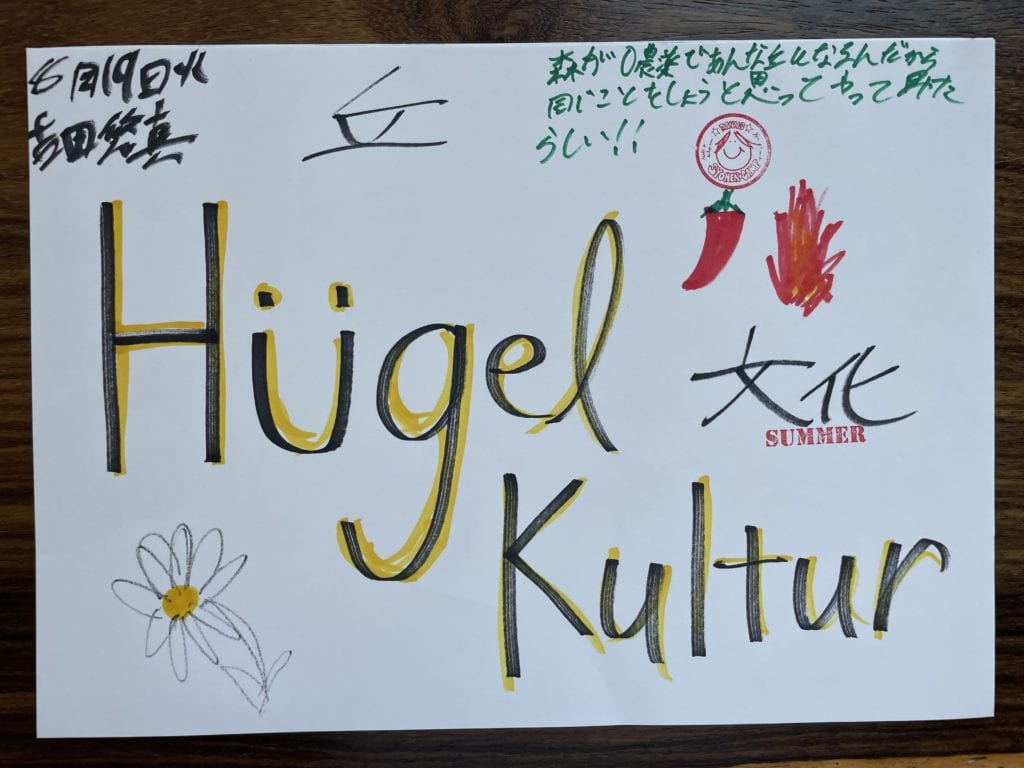 8月19日火
吉田絵真
丘
森が0農薬であんな丘になるんだから
同じことをしようと思ってやって見た
らしい!!
Hügel
文化
SUMMER
Kultur